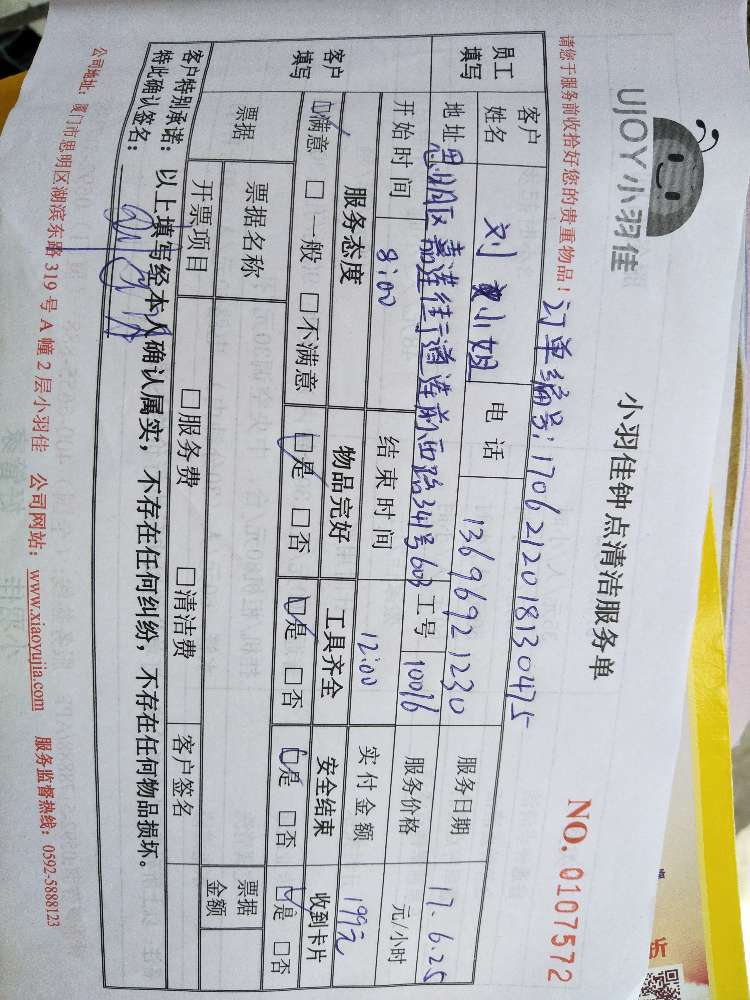 UJOY小羽佳
小羽佳钟点清洁服务单
NO. 0107572
请您于服务前收拾好您的贵重物品！
订单编号：170621201813０475
员工填写 客户姓名 刘小姐 电话 13696921230 服务日期 17.6.25
地址 思明区嘉莲街道莲前西路341号603 工号 10096 服务价格 元/小时
开始时间 8:00 结束时间 12:00 实付金额 199元
客户填写 服务态度 物品完好 工具齐全 安全结束 收到卡片
☑满意 □一般 □不满意 ☑是 □否 ☑是 □否 ☑是 □否 ☑是 □否
票据 票据名称 票据金额
开票项目 □服务费 □清洁费 客户签名
客户特别承诺：以上填写经本人确认属实，不存在任何纠纷，不存在任何物品损坏。
特此确认签名：
公司地址：厦门市思明区湖滨东路319号A幢2层小羽佳 公司网站：www.xiaoyujia.com 服务监督热线：0592-5888123
折